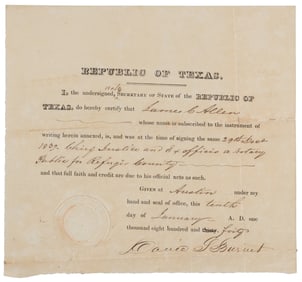 REPUBLIC OF TEXAS.
I, the undersigned, SECRETARY OF STATE OF THE REPUBLIC OF
TEXAS, do hereby certify that James C Allen
whose name is subscribed to the instrument of
writing herein annexed, is, and was at the time of signing the same 29th
1839 Chief Justice and Ex officio a Notary
Public for Refugio County
and that full faith and credit are due to his official acts as such.
GIVEN AT Austin under my
hand and seal of office, this tenth
day of January A. D. one
thousand eight hundred and thirty forty
David G Burnet